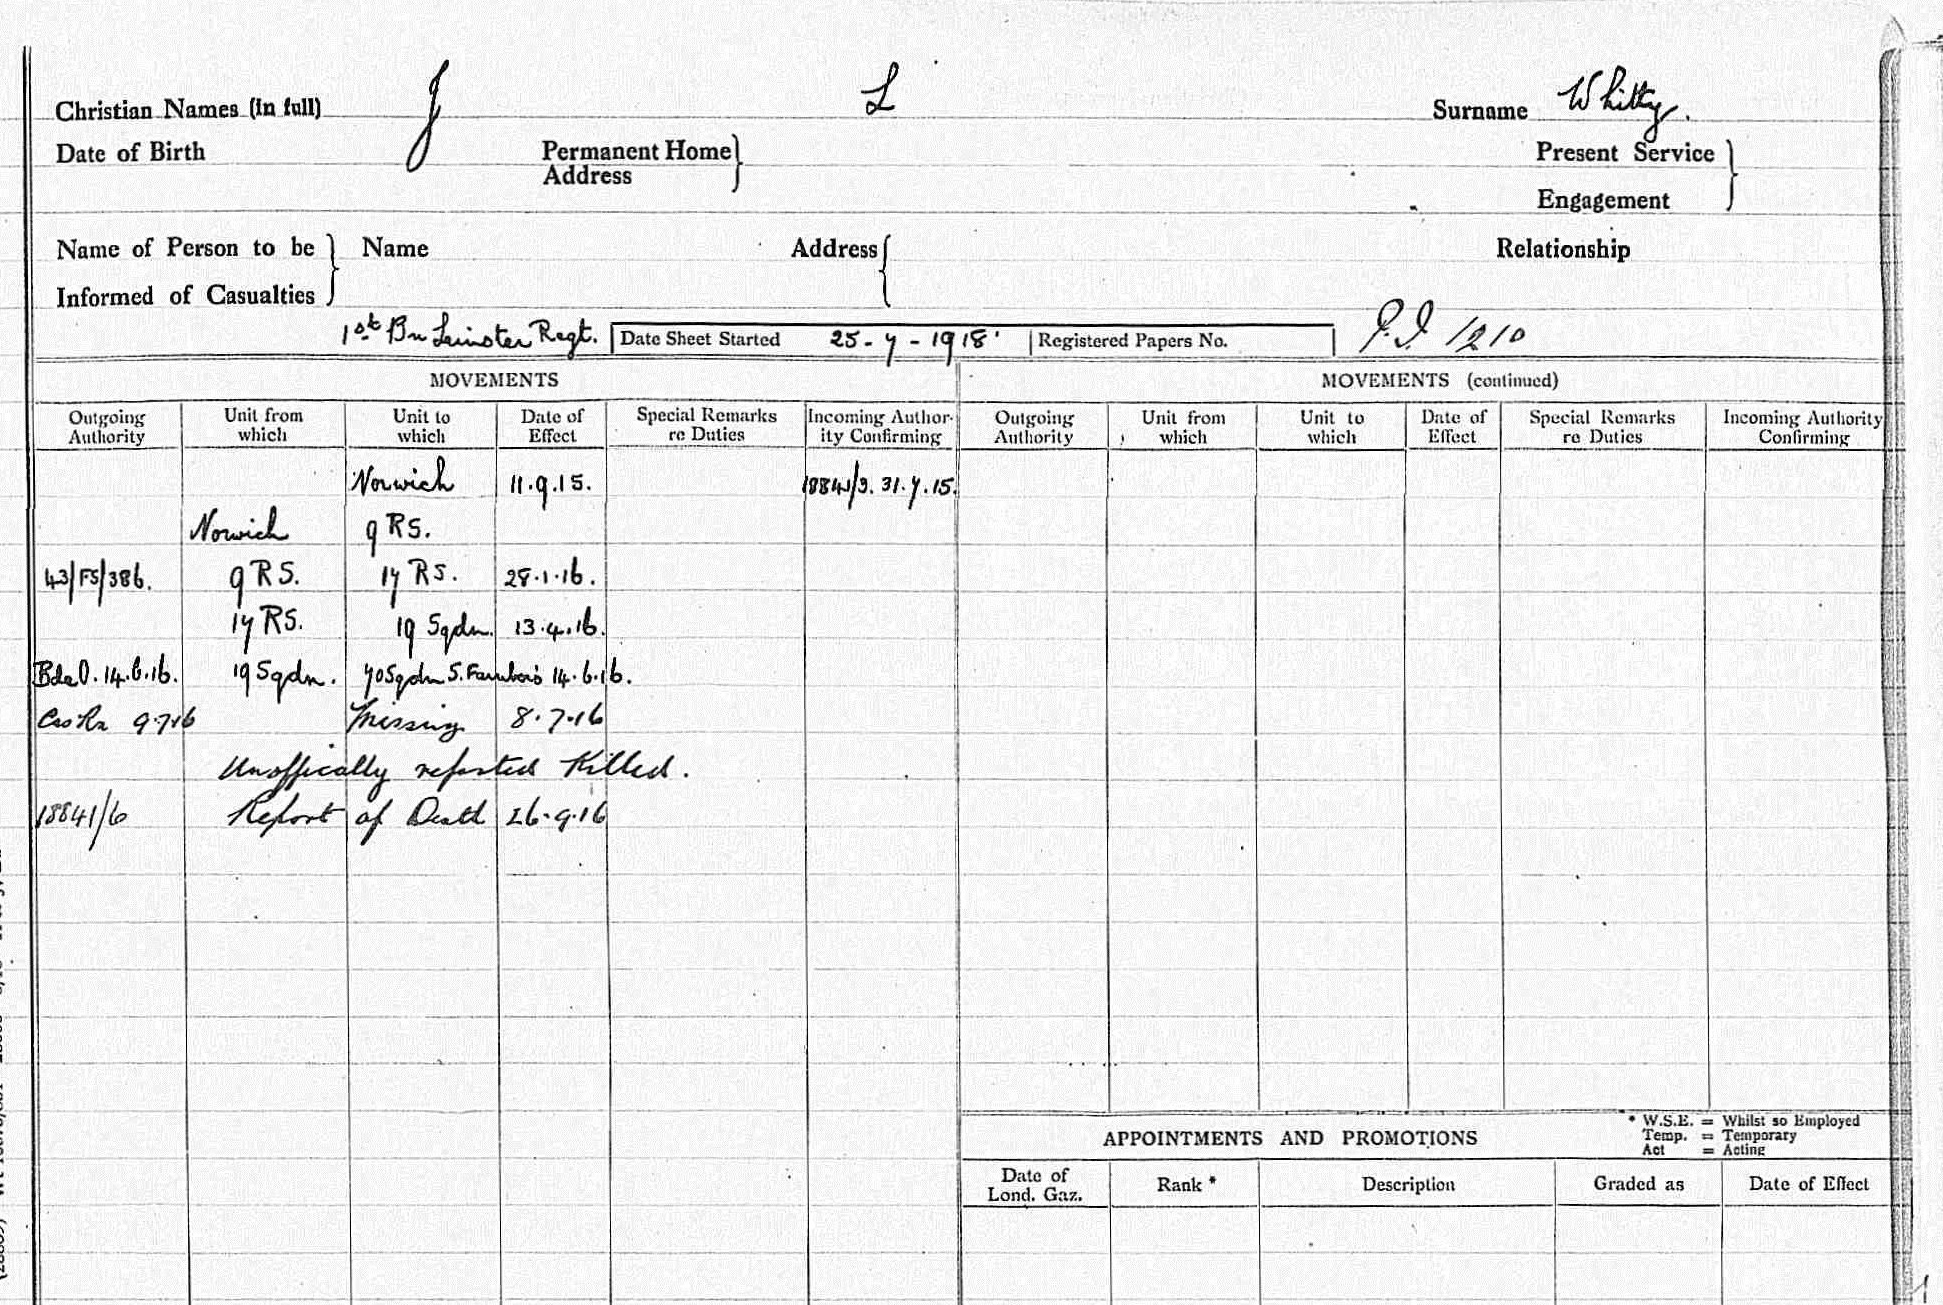 Christian Names (in full) J L Surname Whitty.
Date of Birth Permanent Home Address Present Service
Engagement
Name of Person to be Informed of Casualties Name Address Relationship
1st Bn Leinster Regt. Date Sheet Started 25-7-1918 Registered Papers No. P.I. 1210
MOVEMENTS MOVEMENTS (continued)
Outgoing Authority Unit from which Unit to which Date of Effect Special Remarks re Duties Incoming Authority Confirming Outgoing Authority Unit from which Unit to which Date of Effect Special Remarks re Duties Incoming Authority Confirming
Norwich 11.9.15. 18841/3. 31.7.15.
Norwich 9 RS.
43/FS/386. 9 RS. 17 RS. 28.1.16.
17 RS. 19 Sqdn. 13.4.16.
Bde O. 14.6.16. 19 Sqdn. 70 Sqdn S. Farnboro 14.6.16.
9.7.16 Missing 8.7.16
Unoffically reported Killed.
18841/6 Report of Death 26.9.16
* W.S.E. = Whilst so Employed
APPOINTMENTS AND PROMOTIONS Temp. = Temporary
Act = Acting
Date of Lond. Gaz. Rank * Description Graded as Date of Effect